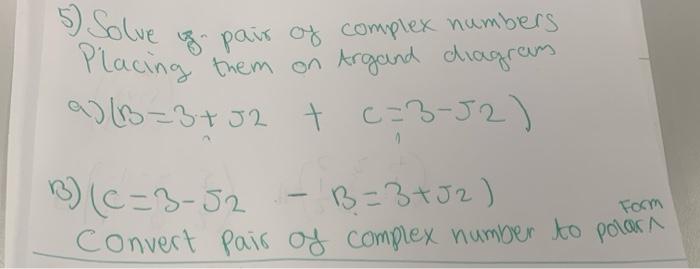 5) Solve pair of complex numbers
Placing them on Argand diagram
a) (B=3+J2 + C=3-J2)
B) (C=3-J2 - B=3+J2)
Form
Convert Pair of complex number to polar ^